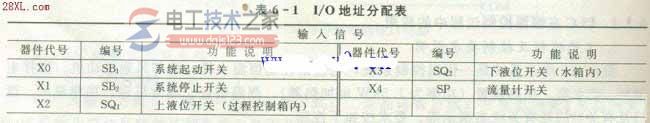 28XL.com
电工技术之家
表6-1 I/O地址分配表
输入信号
器件代号 编号 功能说明 器件代号 编号 功能说明
X0 SB₁ 系统起动开关 X3 SQ₂ 下液位开关（水箱内）
X1 SB₂ 系统停止开关 X4 SP 流量计开关
X2 SQ₁ 上液位开关（过程控制箱内）